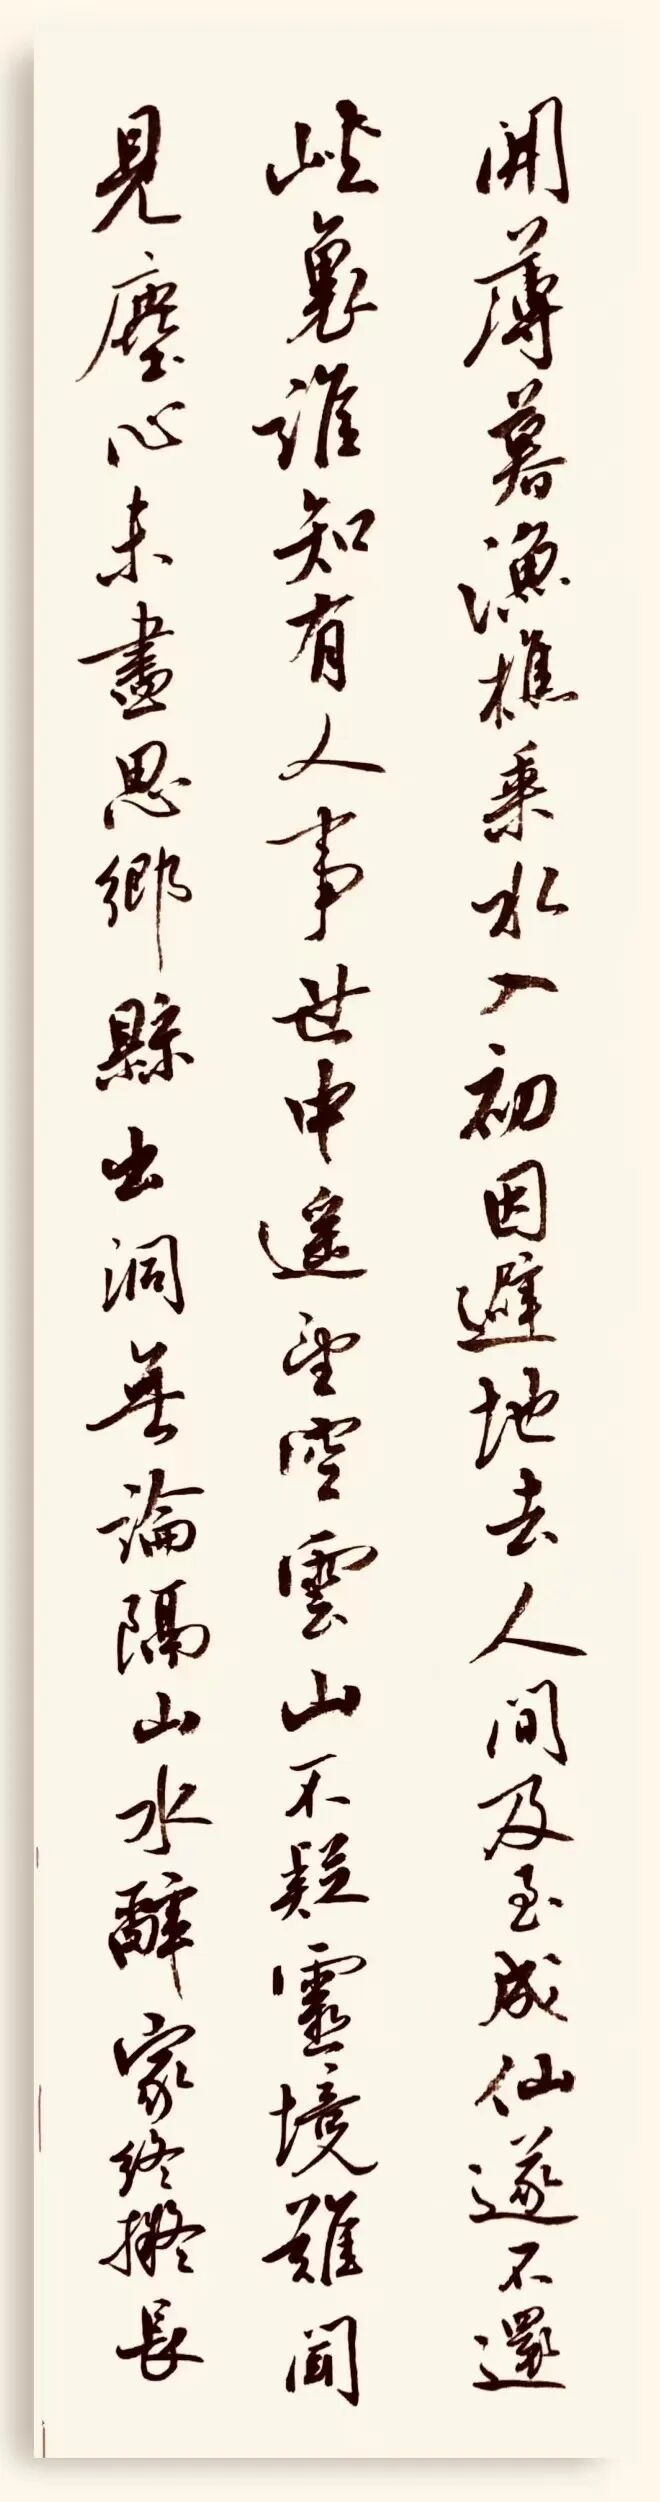 開薄暮漁樵乘水入初因避地去人間及至成仙遂不還
峽裏誰知有人事世中遙望空雲山不疑靈境難聞
見塵心未盡思鄉縣出洞無論隔山水辭家終擬長